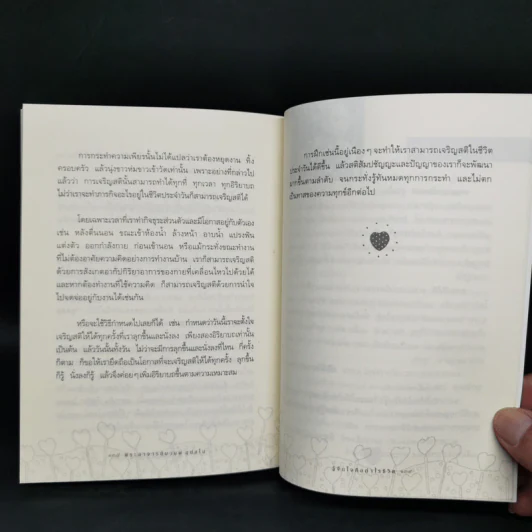 การกระทำความเพียรนั้นไม่ได้แปลว่าเราต้องหยุดงาน ทิ้ง
ครอบครัว แล้วนุ่งขาวห่มขาวเข้าวัดเท่านั้น เพราะอย่างที่กล่าวไป
แล้วว่า การเจริญสตินั้นสามารถทำได้ทุกที่ ทุกเวลา ทุกอิริยาบถ
ไม่ว่าจะทำภารกิจอะไรอยู่ในชีวิตประจำวันก็สามารถเจริญสติได้
โดยเฉพาะเวลาที่เราทำกิจธุระส่วนตัวและมีโอกาสอยู่กับตัวเอง
เช่น หลังตื่นนอน ขณะเข้าห้องน้ำ ล้างหน้า อาบน้ำ แปรงฟัน
แต่งตัว ออกกำลังกาย ก่อนเข้านอน หรือแม้กระทั่งขณะทำงาน
ที่ไม่ต้องอาศัยความคิดอย่างการทำงานบ้าน เราก็สามารถเจริญสติ
ด้วยการสังเกตอากัปกิริยาอาการของกายที่เคลื่อนไหวไปด้วยได้
และหากต้องทำงานที่ใช้ความคิด ก็สามารถเจริญสติด้วยการนำใจ
ไปจดจ่ออยู่กับงานได้เช่นกัน
หรือจะใช้วิธีกำหนดไปเลยก็ได้ เช่น กำหนดว่าวันนี้เราจะตั้งใจ
เจริญสติให้ได้ทุกครั้งที่เราลุกขึ้นและนั่งลง เพียงสองอิริยาบถเท่านั้น
เป็นต้น แล้ววันนั้นทั้งวัน ไม่ว่าจะมีการลุกขึ้นและนั่งลงที่ไหน กี่ครั้ง
ก็ตาม ก็ขอให้เรายึดถือเป็นโอกาสที่จะเจริญสติให้ได้ทุกครั้ง ลุกขึ้น
ก็รู้ นั่งลงก็รู้ แล้วจึงค่อยๆ เพิ่มอิริยาบถขึ้นตามความเหมาะสม
การฝึกเช่นนี้อยู่เนืองๆ จะทำให้เราสามารถเจริญสติในชีวิต
ประจำวันได้ดีขึ้น แล้วสติสัมปชัญญะและปัญญาของเราก็จะพัฒนา
มากขึ้นตามลำดับ จนกระทั่งรู้ทันหมดทุกการกระทำ และไม่ตก
เป็นทาสของความทุกข์อีกต่อไป